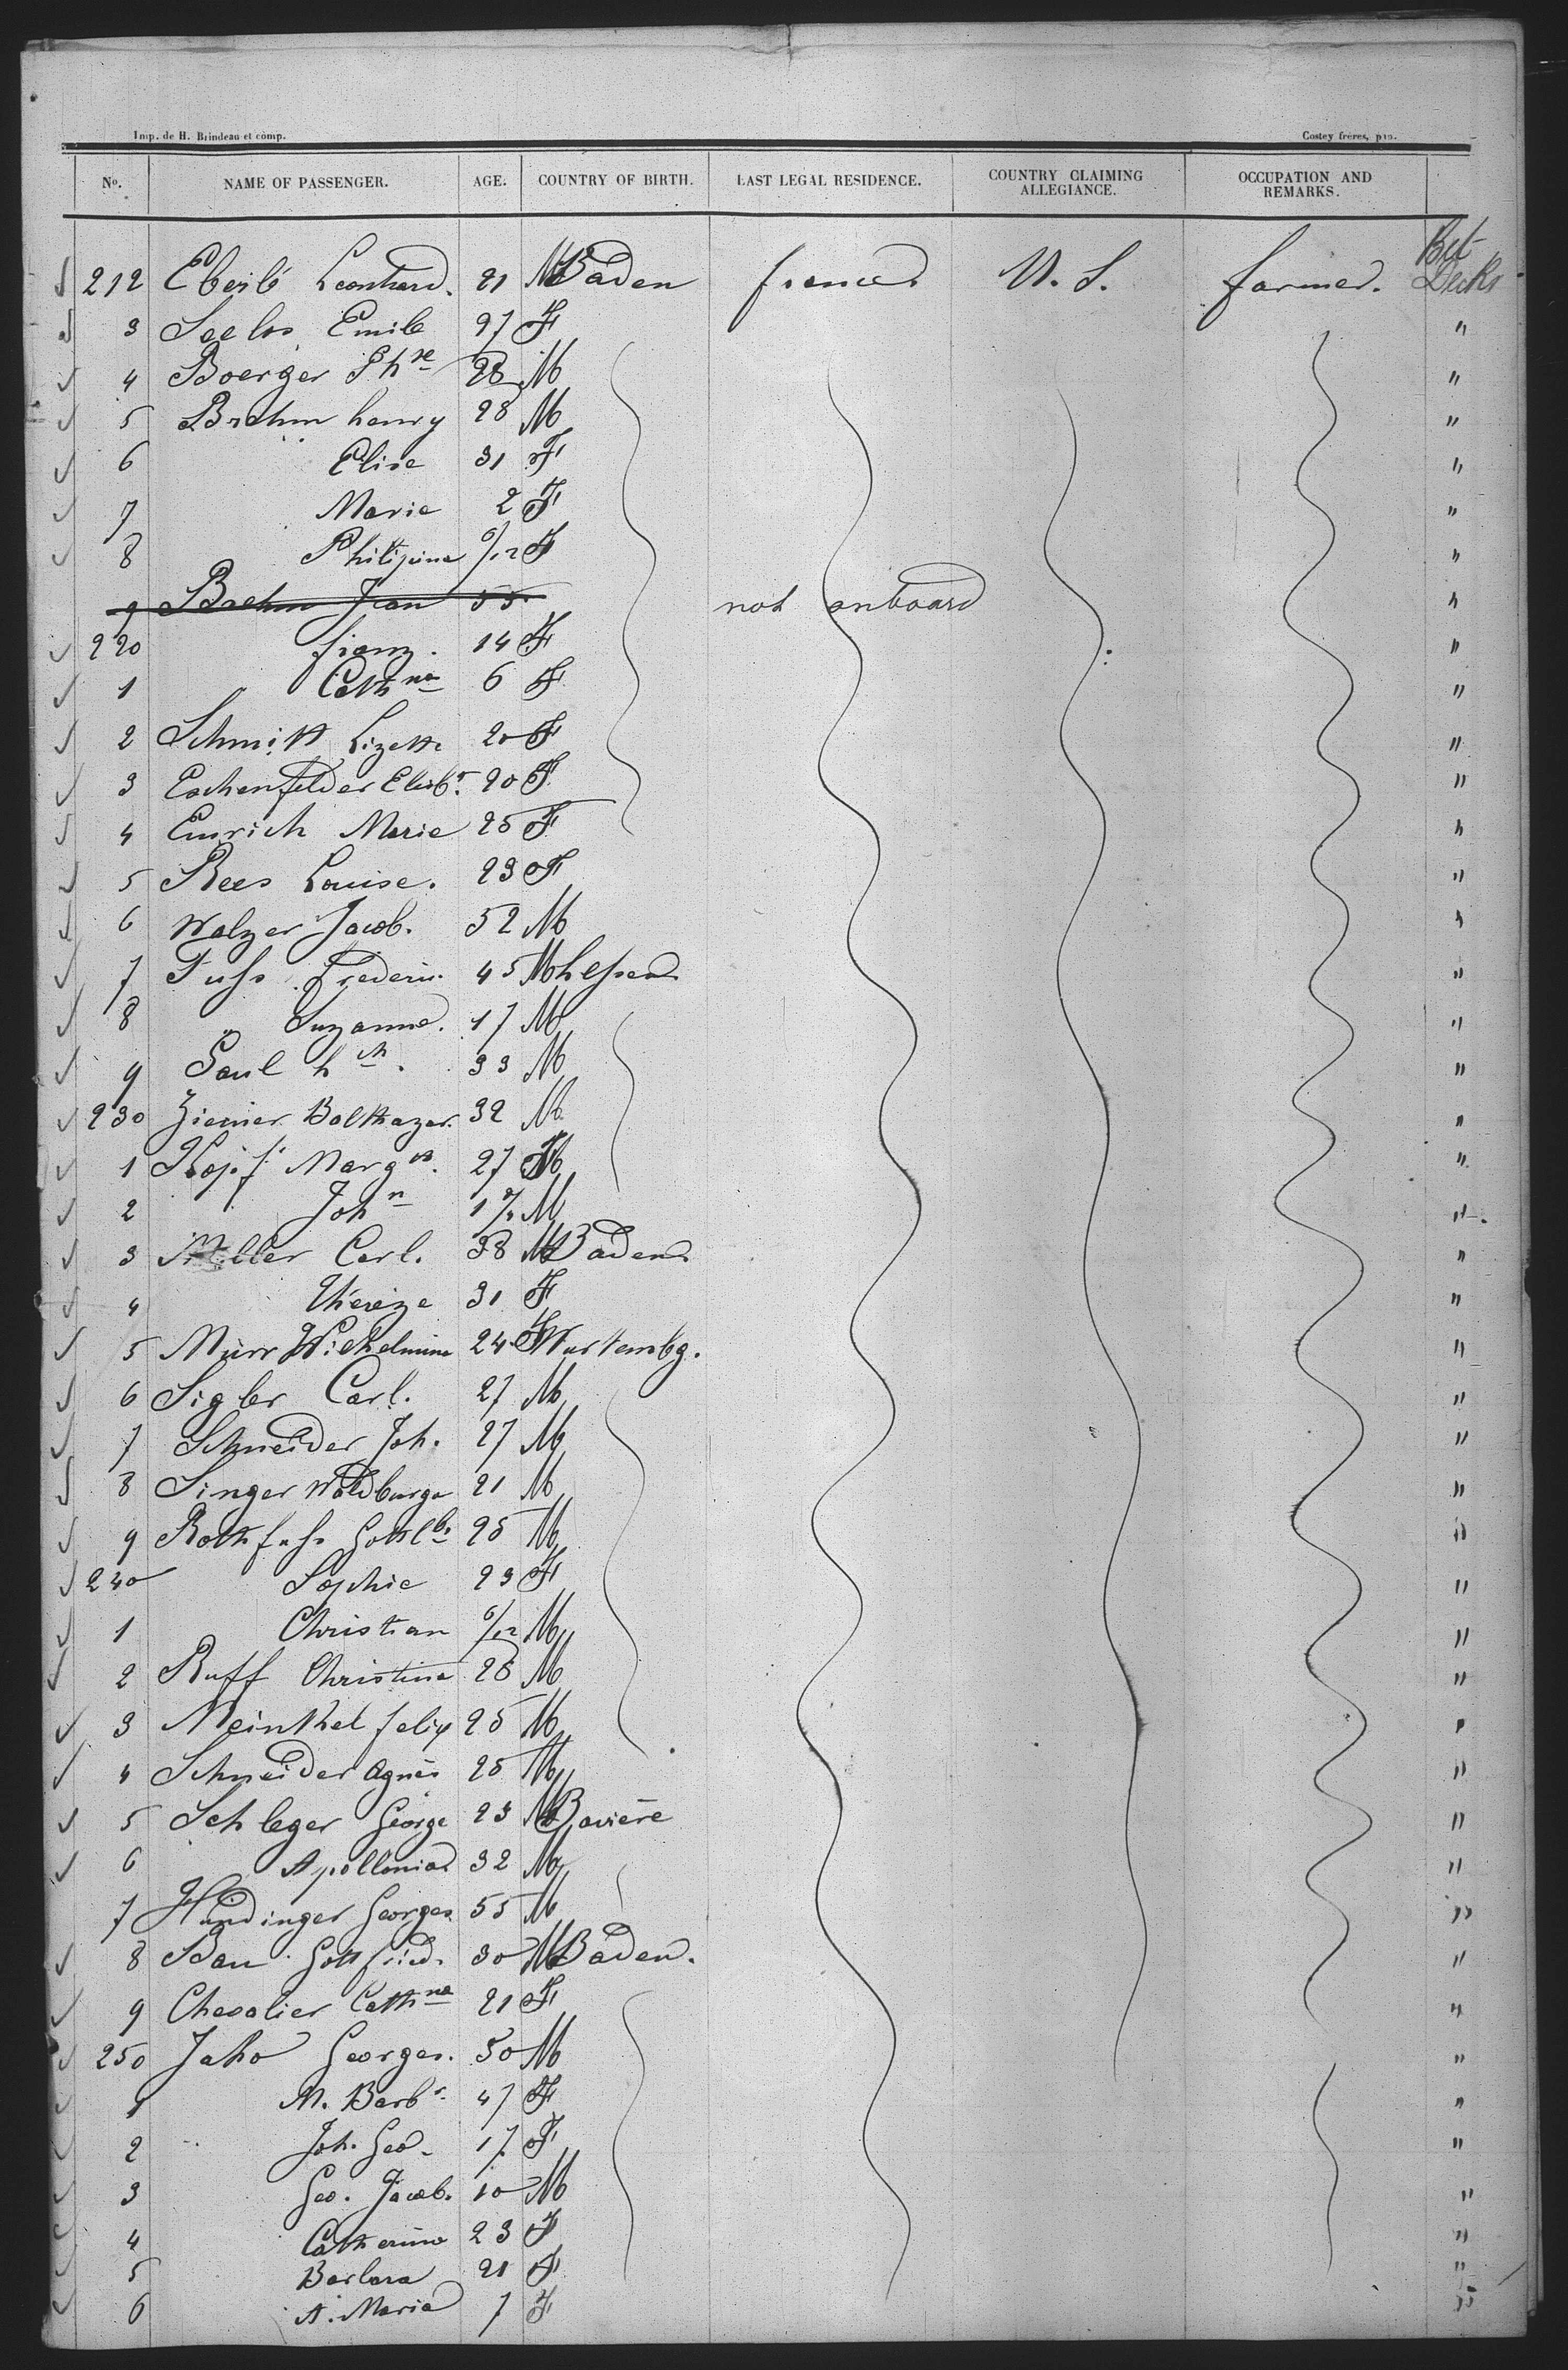 Imp. de H. Brindeau et comp. Costey frères, pro.
No. NAME OF PASSENGER. AGE. COUNTRY OF BIRTH. LAST LEGAL RESIDENCE. COUNTRY CLAIMING ALLEGIANCE. OCCUPATION AND REMARKS.
212 Eberlé Leonhard. 21 M Baden france U.S. farmer. Bet Decks
3 Seelos Emile 27 F "
4 Boerger Phse 28 M "
5 Brehm henry 28 M "
6 Elise 31 F "
7 Marie 2 F "
8 Philipine 6/12 F "
9 Brehm Jean 55 not onboard "
220 franz. 14 F "
1 Cathna 6 F "
2 Schmitt Lizette 20 F "
3 Eschenfelder Elisb. 20 F "
4 Emrich Marie 25 F "
5 Rees Louise. 23 F "
6 Walzer Jacob. 52 M "
7 Fuss Frederic 45 M hessen "
8 " Suzanne. 17 M "
9 Paul hch. 33 M "
230 Ziemer Balthazar. 32 M "
1 Kopf Margta. 27 "
2 John M "
3 Miller Carl. 38 M Baden "
4 Thereze 31 F "
5 Mürr Wilhelmine 24 F Wurtembg. "
6 Sigler Carl. 27 M "
7 Schneider Joh. 27 M "
8 Singer Waldburga 21 M "
9 Rothfuss Gottlb. 25 M "
240 Sophie 23 F "
1 Christian 6/12 M "
2 Ruff Christina 28 M "
3 Meinthel felix 25 M "
4 Schneider Agnès 25 M "
5 Schleger George 23 M Bavière "
6 Apollonia 32 M "
7 Hundinger Georges 55 M "
8 Bau Gottfried. 30 M Baden. "
9 Chevalier Cathna 21 F "
250 Jaho Georges. 50 M "
1 M. Barb. 47 F "
2 Joh. Geo. 17 F "
3 Geo. Jacob. 10 M "
4 Catherine 23 F "
5 Barbara 21 F "
6 A. Maria 7 F "